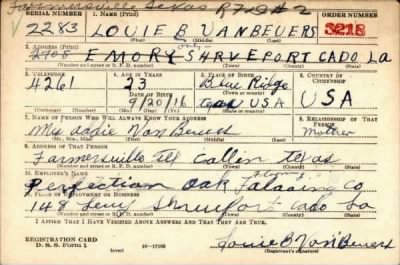 Farmersville Texas R
SERIAL NUMBER 1. NAME (Print) ORDER NUMBER
V 2283 LOUIE B VANBEUERS 3218
(First) (Middle) (Last)
2. ADDRESS (Print) only
2708 EMORY SHRVEPORT CADO LA
(Town) (County) (State)
3. TELEPHONE 4. AGE IN YEARS 5. PLACE OF BIRTH 6. COUNTRY OF CITIZENSHIP
4261 23 Blue Ridge
DATE OF BIRTH (Town or county)
9/20/16 USA USA
(Mo.) (Day) (Yr.) (State or country)
7. NAME OF PERSON WHO WILL ALWAYS KNOW YOUR ADDRESS 8. RELATIONSHIP OF THAT PERSON
Mrs Van Beuers Mother
(Mr., Mrs., Miss) (First) (Middle) (Last)
9. ADDRESS OF THAT PERSON
Farmersville Collin Texas
(Town) (County) (State)
10. EMPLOYER'S NAME
Perfection Oak Flooring Co
11. PLACE OF EMPLOYMENT OR BUSINESS
148 Levy Shreveport Cado La
(Town) (County) (State)
I AFFIRM THAT I HAVE VERIFIED ABOVE ANSWERS AND THAT THEY ARE TRUE.
REGISTRATION CARD
D. S. S. Form 1 (over) 16-17105 Louie B Van Beuers
(Registrant's signature)